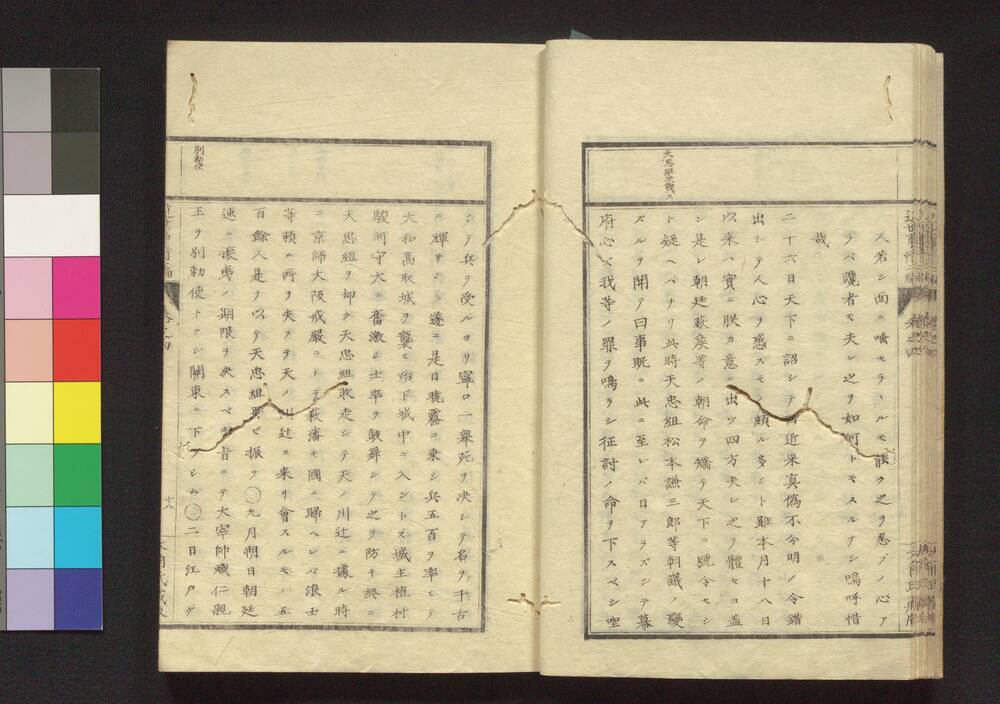 人若シ面ニ唾セラルヽモ能ク之ヲ忍ブノ心ア
ラバ讒者モ夫レ之ヲ如何トモスルナシ嗚呼惜
哉
二十六日天下ニ詔シテ曰近來真偽不分明ノ令錯
出シテ人心ヲ惑スモノ頗ル多シト雖本月十八日
以来ハ實ニ朕カ意ニ出ツ四方夫レ之ヲ體セヨ蓋
シ是レ朝廷萩矦等ノ朝命ヲ矯テ天下ニ號令セシ
ト疑ヘバナリ此時天忠組松本謙三郎等朝議ノ變
ズルヲ聞テ曰事既ニ此ニ至レバ日アラズシテ幕
府必ズ我等ノ罪ヲ鳴ラシ征討ノ命ヲ下スベシ坐
天忠組决戦ス
シテ兵ヲ受ルヨリ寧ロ一擧死ヲ决シテ名ヲ千古
ニ輝サント遂ニ是日曉霧ニ乗シ兵五百ヲ率ヒテ
大和高取城ヲ襲ヒ殆ト城中ニ入ントス城主植村
駿河守大ニ奮激シ士卒ヲ皷舞シテ之ヲ防キ終ニ
天忠組ヲ却ク天忠組敗走シテ天ノ川辻ニ據ル時
ニ京師大阪戒嚴ニシテ萩藩モ國ニ歸ヘレバ浪士
等頼ム所ヲ失フテ天ノ川辻ニ来リ會スルモノ五
百餘人是ヲ以テ天忠組再ビ振フ○九月朔日朝廷
速ニ攘夷ノ期限ヲ决スベキ旨ニテ大宰帥熾仁親
王ヲ別勅使トナシ關東ニ下ラシム○二日江戸ケ
別勅使